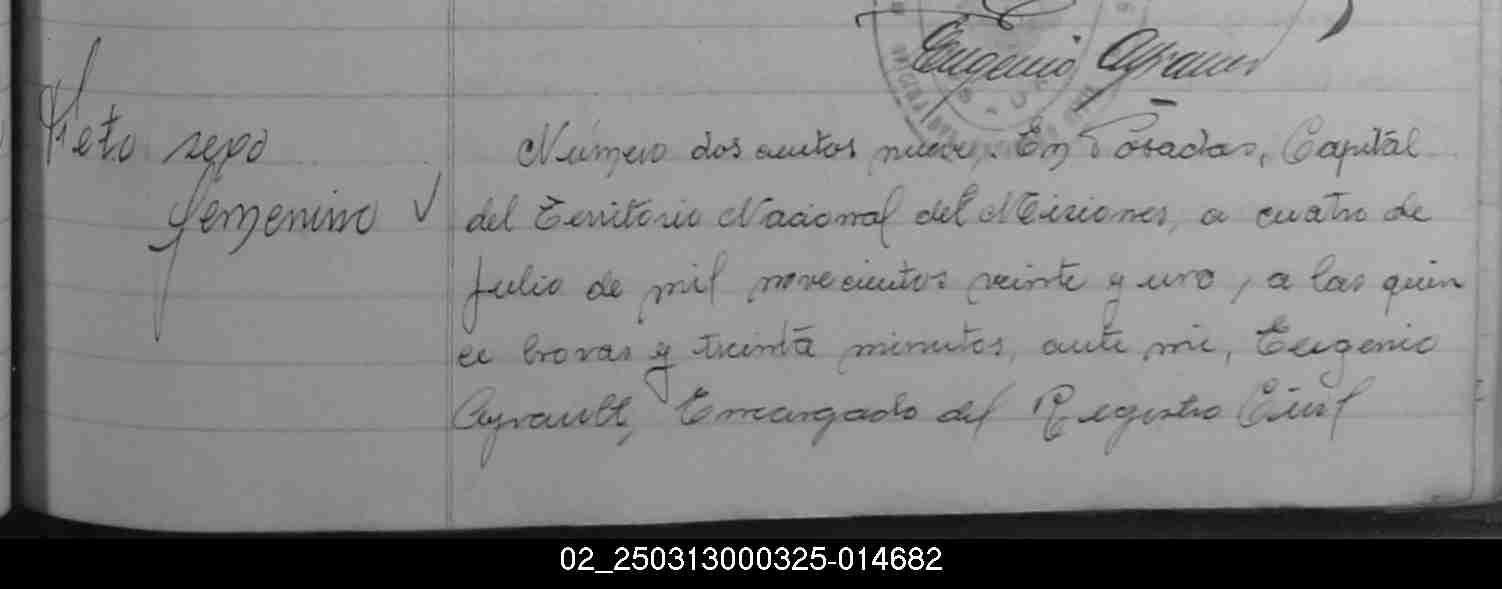 Eugenio Ayrault
Feto sexo
femenino ✓
Número doscientos nueve. En Posadas, Capital
del Territorio Nacional del Misiones, a cuatro de
Julio de mil novecientos veinte y uno, a las quin
ce horas y treinta minutos, ante mi, Eugenio
Ayrault, Encargado del Registro Civil
02_250313000325-014682